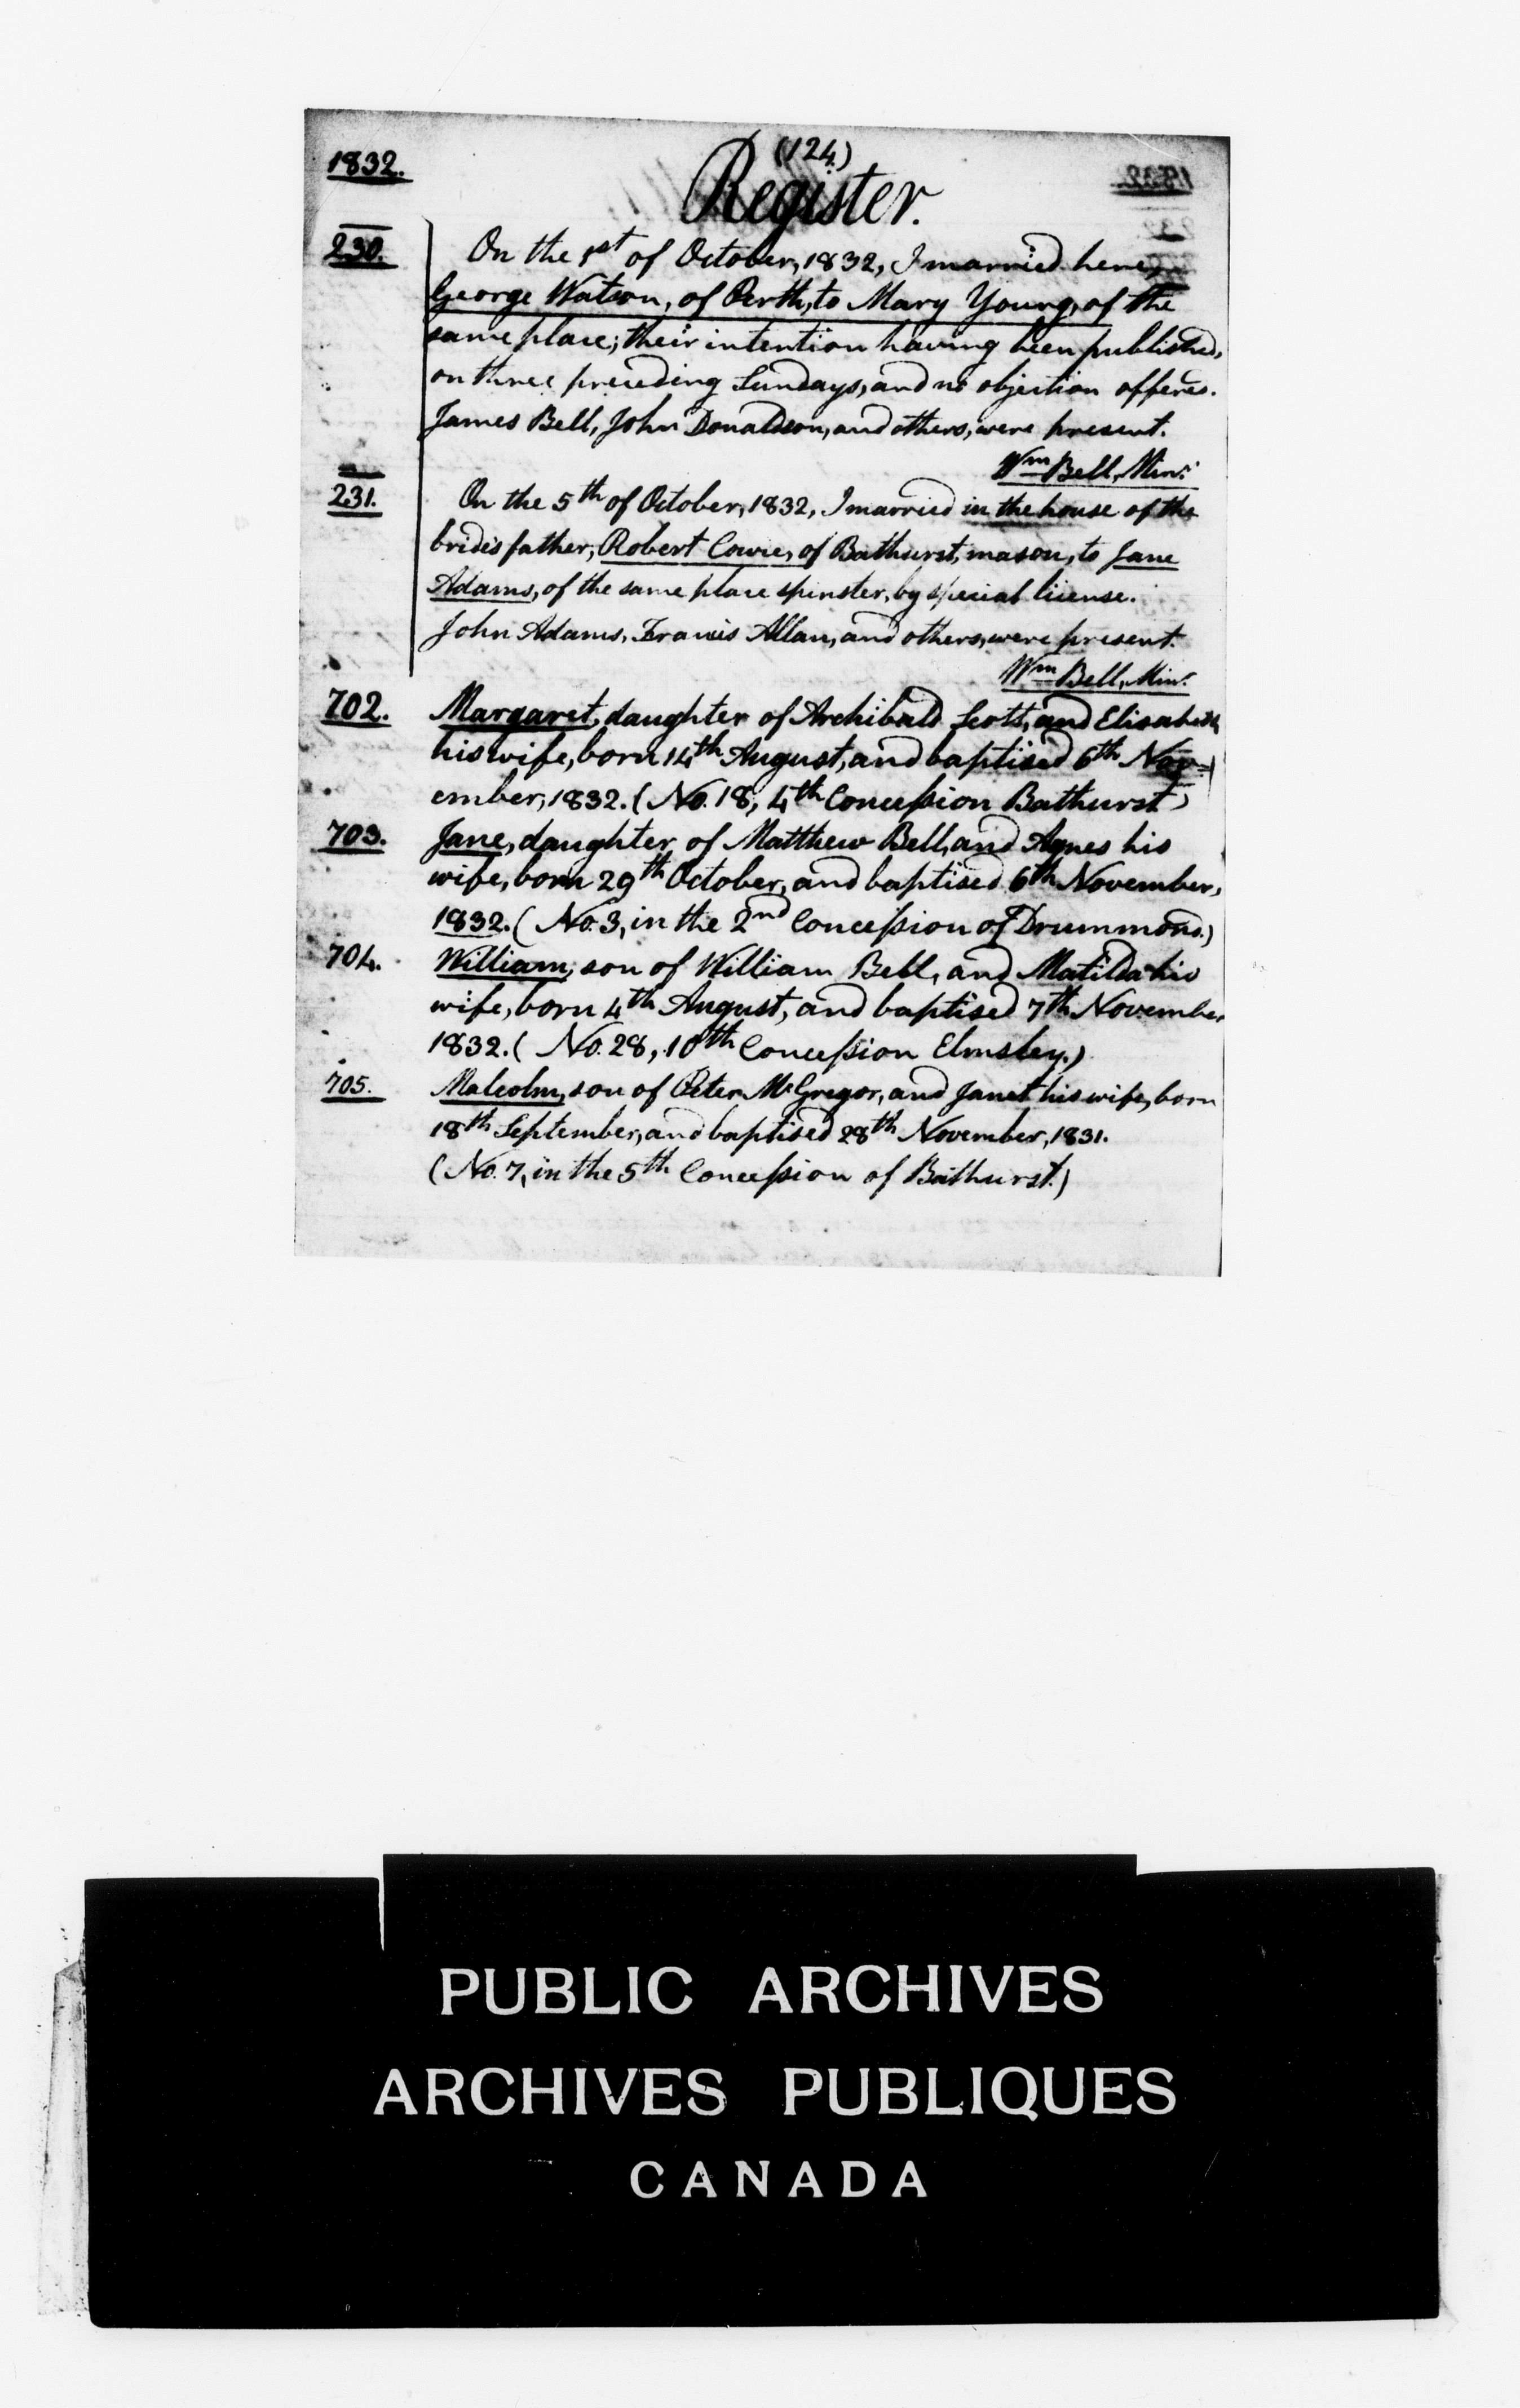 (124)
1832.
Register.
230.
On the 1st of October, 1832, I married here,
George Watson, of Perth, to Mary Young, of the
same place; their intention having been published,
on three preceding Sundays, and no objection offered.
James Bell, John Donaldson, and others, were present.
Wm Bell, Min:
231.
On the 5th of October, 1832, I married in the house of the
bride's father, Robert Cowie, of Bathurst, mason, to Jane
Adams, of the same place spinster, by special license.
John Adams, Francis Allan, and others, were present.
Wm Bell, Min:
702. Margaret, daughter of Archibald Scott, and Elisabeth
his wife, born 14th August, and baptised 6th Nov-
ember, 1832. (No. 18, 4th Concession Bathurst)
703. Jane, daughter of Matthew Bell, and Agnes his
wife, born 29th October, and baptised 6th November,
1832. (No. 3, in the 2nd Concession of Drummond.)
704. William, son of William Bell, and Matilda his
wife, born 4th August, and baptised 7th November
1832. (No. 28, 10th Concession Elmsley.)
705. Malcolm, son of Peter McGregor, and Janet his wife, born
18th September, and baptised 28th November, 1831.
(No. 7, in the 5th Concession of Bathurst.)
PUBLIC ARCHIVES
ARCHIVES PUBLIQUES
CANADA